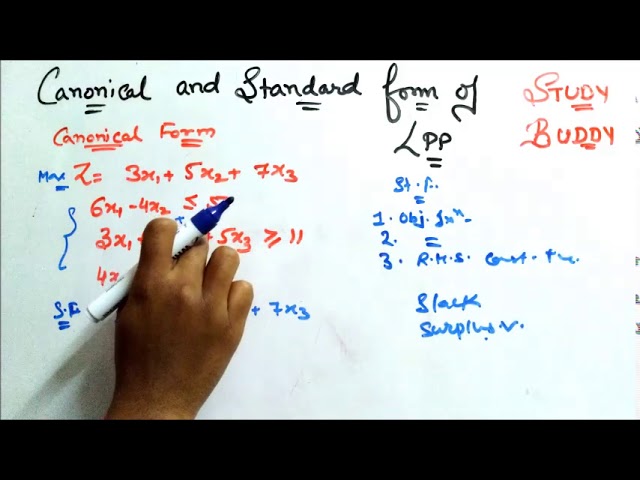 Canonical and Standard form of LPP
STUDY BUDDY
Canonical Form
Max Z = 3x₁ + 5x₂ + 7x₃
6x₁ - 4x₂ ≤ 5
3x₁ + 5x₃ ≥ 11
4x
S.F. + 7x₃
St. F.
1. Obj. fxⁿ-
2. =
3. R.H.S. const. +ve
Slack
Surplus v.